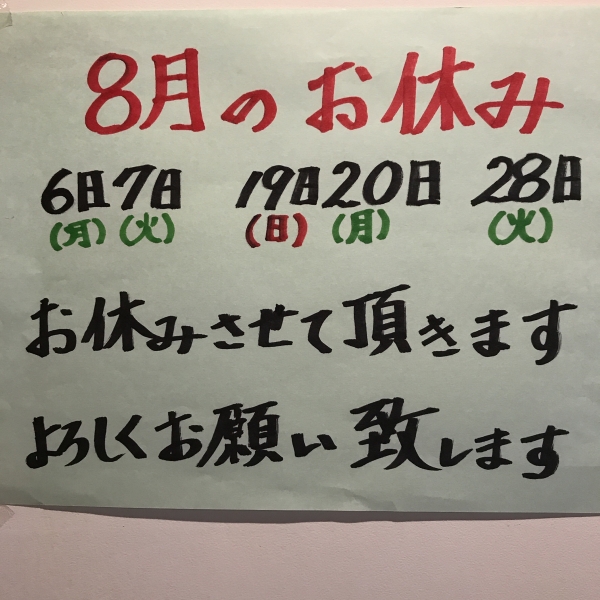 8月のお休み
6日7日 19日20日 28日
(月)(火) (日)(月) (火)
お休みさせて頂きます
よろしくお願い致します